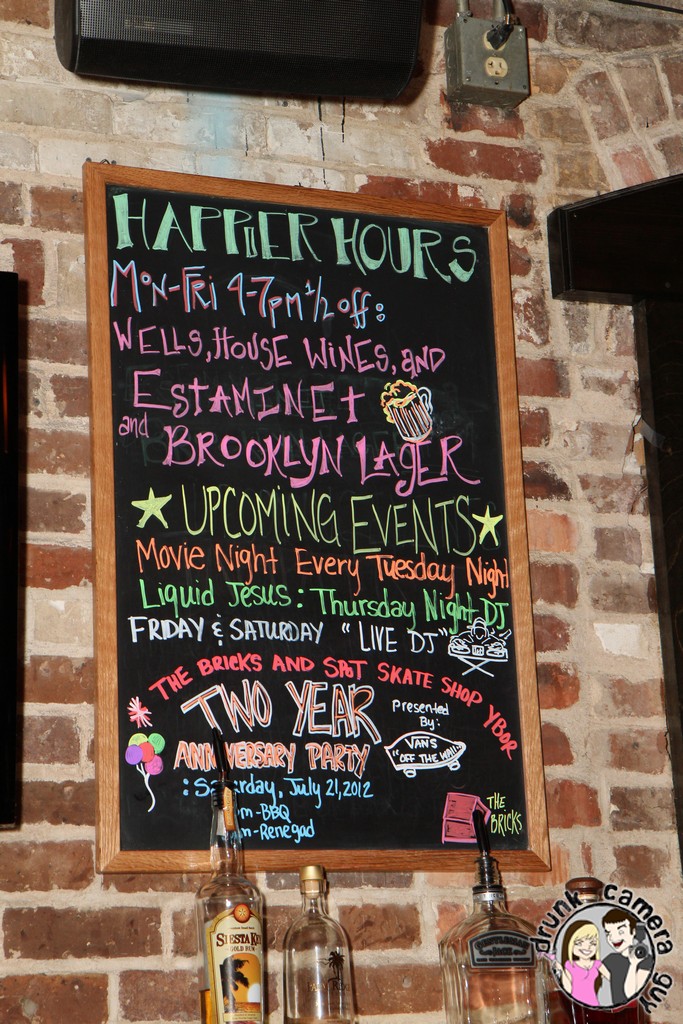 HAPPIER HOURS
Mon-Fri 4-7pm 1/2 off:
WELLS, HOUSE WINES, AND
ESTAMINET
and BROOKLYN LAGER
UPCOMING EVENTS
Movie Night Every Tuesday Night
Liquid Jesus: Thursday Night DJ
FRIDAY & SATURDAY "LIVE DJ"
THE BRICKS AND SPOT SKATE SHOP YBOR
TWO YEAR
ANNIVERSARY PARTY
Presented By:
VANS
"OFF THE WALL"
: Saturday, July 21, 2012
m-BBQ
m-Renegad
THE BRICKS
SIESTA KEY
GOLD RUM
drunk camera guy